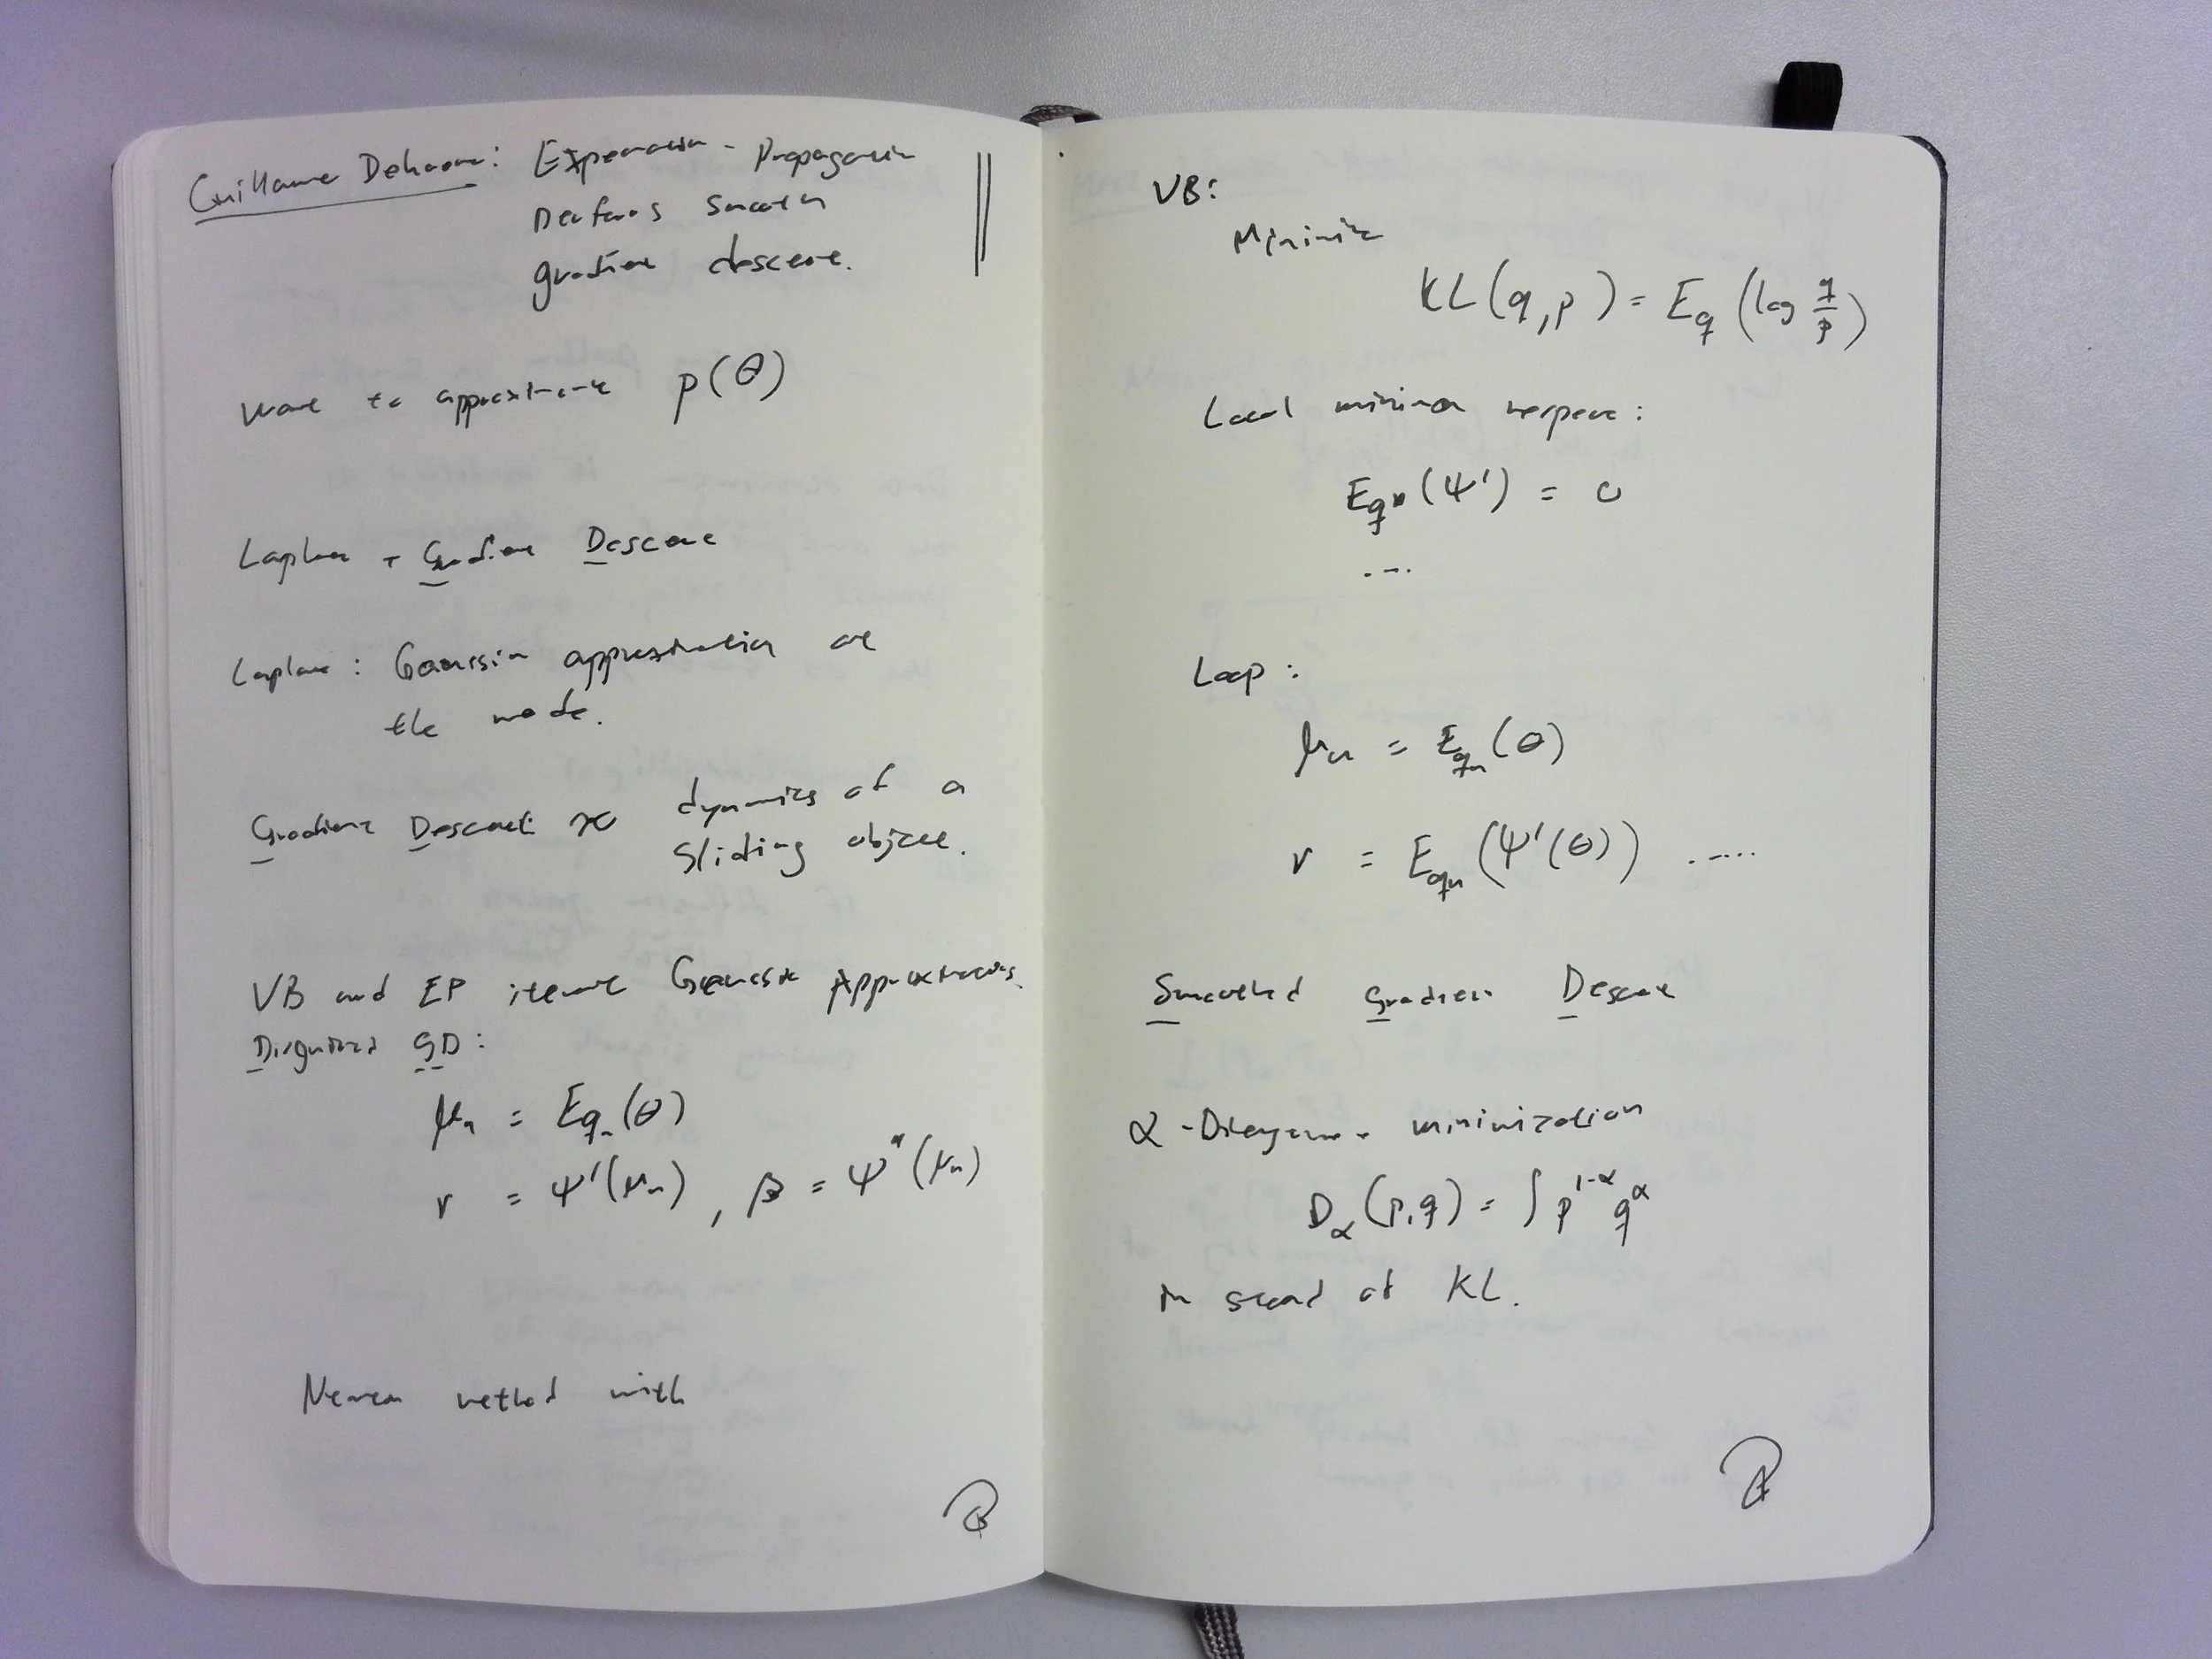 Guillaume Dehaene: Expectation-Propagation
Performs smooth
gradient descent.
Want to approximate p(θ)
Laplace + Gradient Descent
Laplace: Gaussian approximation at
the mode.
Gradient Descent ≈ dynamics of a
sliding object.
VB and EP iterate Gaussian Approximations.
Disguised GD:
μₙ = E_qₙ(θ)
r = Ψ'(μₙ), β = Ψ''(μₙ)
Newton method with
VB:
Minimize
KL(q,p) = E_q(log q/p)
Local minima respect:
E_q*(Ψ') = 0
...
Loop:
μₙ = E_qₙ(θ)
r = E_qₙ(Ψ'(θ)) .....
Smoothed Gradient Descent
α-Divergence minimization
D_α(p,q) = ∫ p^{1-α} q^α
in stead of KL.